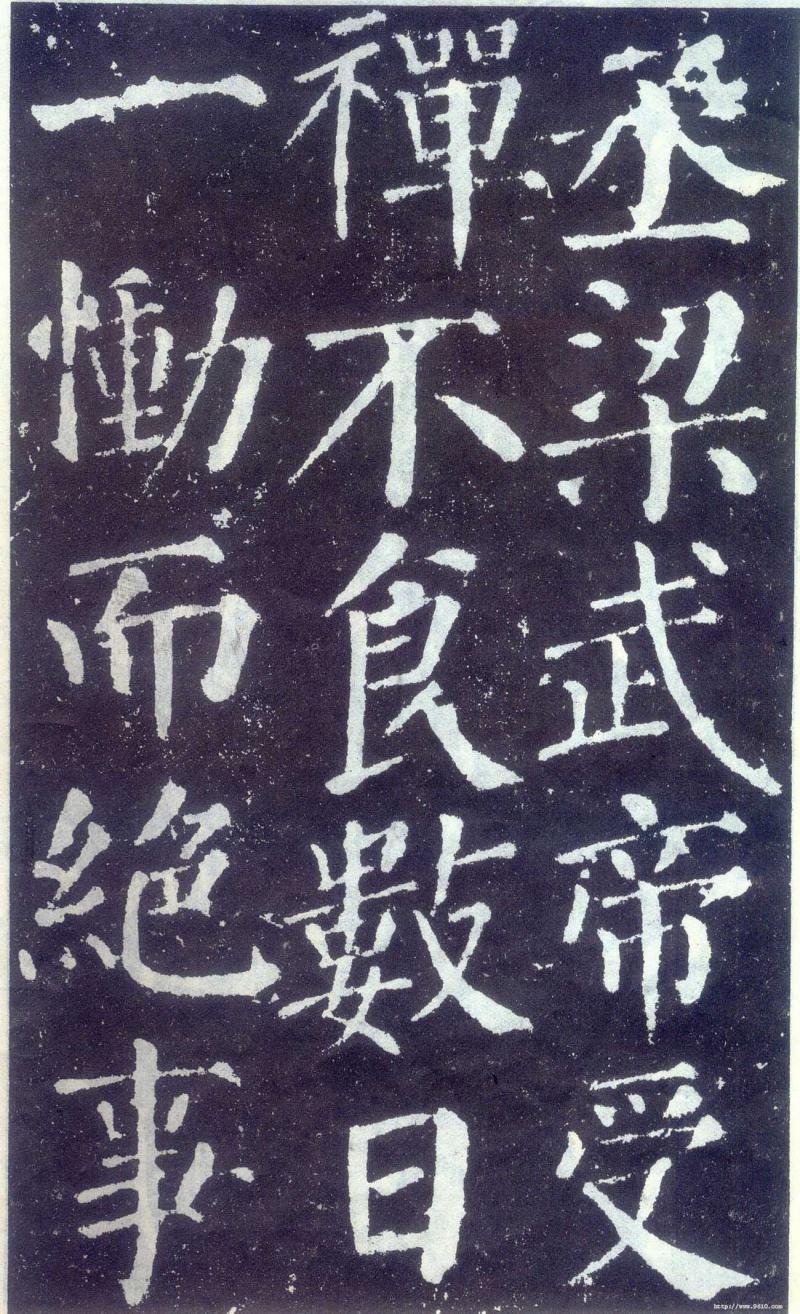 丞梁武帝受
禪不食數日
一慟而絕事
http://www.9610.com